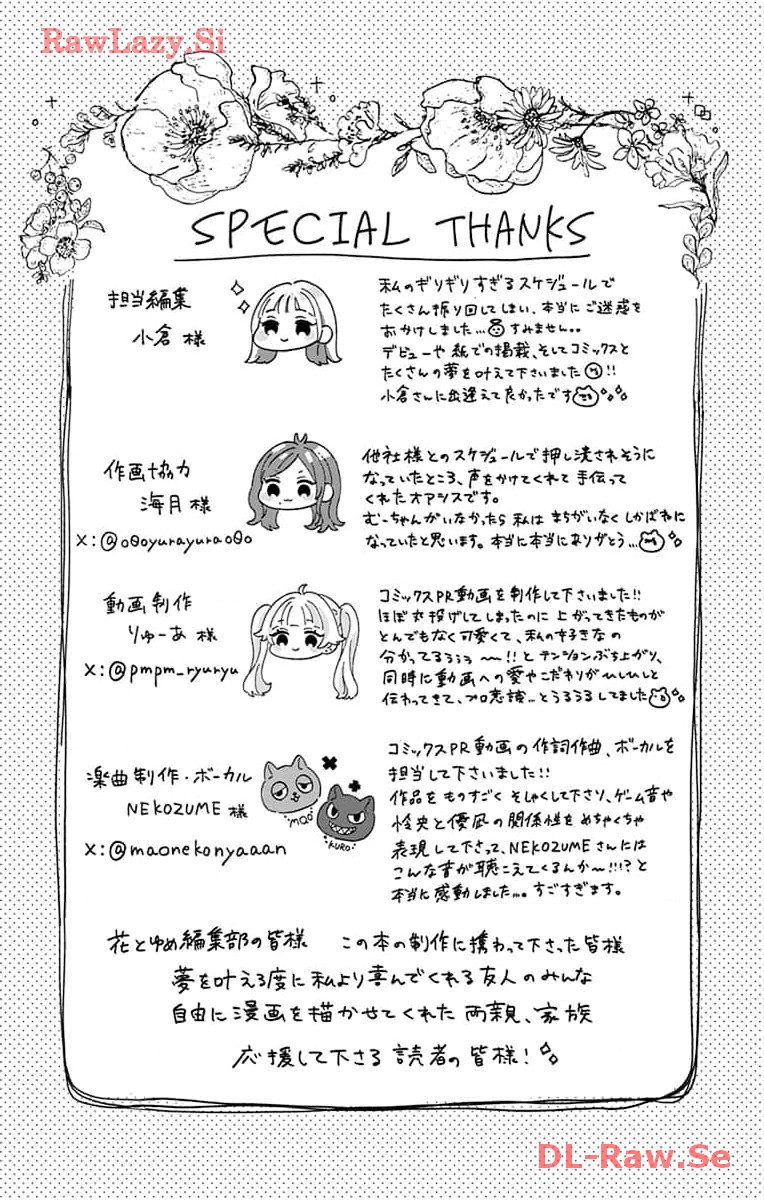 RawLazy.Si
SPECIAL THANKS
担当編集
小倉 様
私のギリギリすぎるスケジュールで
たくさん振り回してしまい、本当にご迷惑を
おかけしました...すみません。。
デビューや紙での掲載、そしてコミックスと
たくさんの夢を叶えて下さいました!!
小倉さんに出逢えて良かったです
作画協力
海月 様
X:@o0oyurayurao0o
他社様とのスケジュールで押し潰されそうに
なっていたところ、声をかけてくれて手伝って
くれたオアシスです。
むーちゃんがいなかったら私はまちがいなくしかばねに
なっていたと思います。本当に本当にありがとう...
動画制作
りゅーあ 様
X:@pmpm_ryuryu
コミックスPR動画を制作して下さいました!!
ほぼ丸投げしてしまったのに上がってきたものが
とんでもなく可愛くて、私の好きなの
分かってるぅぅぅ〜〜!!とテンションぶち上がり、
同時に動画への愛やこだわりがひしひしと
伝わってきて、プロ意識...とうるうるしてました
楽曲制作・ボーカル
NEKOZUME 様
X:@maonekonyaaan
MAO
KURO
コミックスPR動画の作詞作曲、ボーカルを
担当して下さいました!!
作品をものすごくそしゃくして下さり、ゲーム音や
怜史と優凪の関係性をめちゃくちゃ
表現して下さって、NEKOZUMEさんには
こんな音が聴こえてくるんか〜!!!?と
本当に感動しました...。すごすぎます。
花とゆめ編集部の皆様 この本の制作に携わって下さった皆様
夢を叶える度に私より喜んでくれる友人のみんな
自由に漫画を描かせてくれた両親、家族
応援して下さる読者の皆様!
DL-Raw.Se